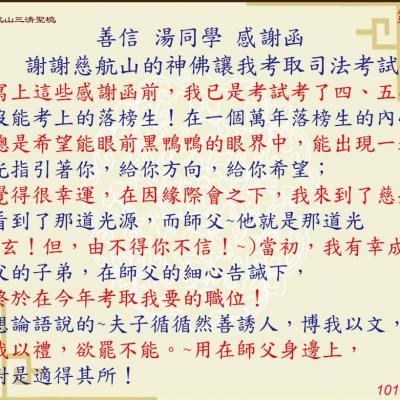 航山三清聖境
善信 湯同學 感謝函
謝謝慈航山的神佛讓我考取司法考試
寫上這些感謝函前，我已是考試考了四、五
沒能考上的落榜生！在一個萬年落榜生的內心
總是希望能眼前黑鴨鴨的眼界中，能出現一
光指引著你，給你方向，給你希望；
覺得很幸運，在因緣際會之下，我來到了慈
看到了那道光源，而師父~他就是那道光
玄！但，由不得你不信！~)當初，我有幸成
父的子弟，在師父的細心告誡下，
終於在今年考取我要的職位！
想論語說的~夫子循循然善誘人，博我以文，
我以禮，欲罷不能。~用在師父身邊上，
對是適得其所！
101